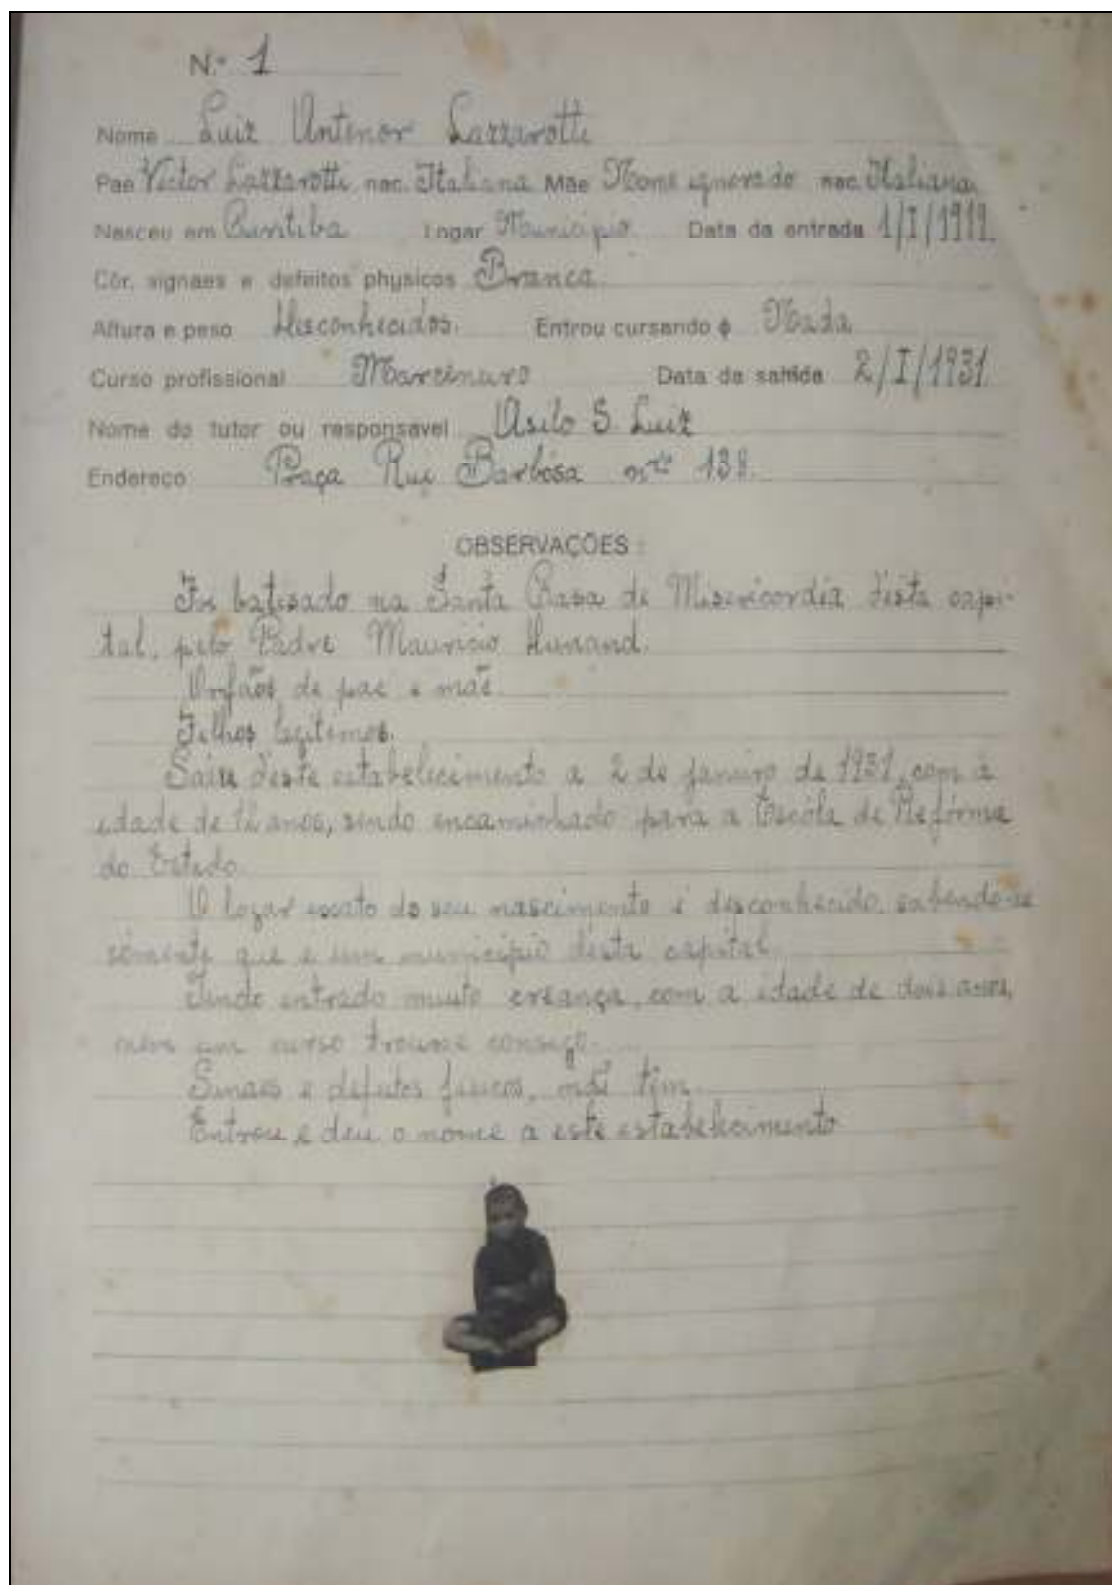 N.º 1
Nome Luiz Antenor Lazzarotti
Pae Victor Lazzarotti nac. Italiana Mãe Nome ignorado nac. Italiana
Nasceu em Curitiba Logar Municipio Data da entrada 1/I/1919.
Côr, signaes e defeitos physicos Branca.
Altura e peso Desconhecidos. Entrou cursando o Nada
Curso profissional Marceneiro Data da sahida 2/I/1931
Nome do tutor ou responsavel Asilo S. Luiz
Endereço Praça Rui Barbosa nº 138.
OBSERVAÇÕES :
Foi batisado na Santa Casa de Misericordia desta capi-
tal, pelo Padre Mauricio
Orfãos de pae e mãe.
Filhos legitimos.
Saiu deste estabelecimento a 2 de janeiro de 1931, com a
idade de 12 anos, sendo encaminhado para a Escóla de Refórma
do Estado.
O logar do seu nascimento é desconhecido, sabendo-se
sómente que é um municipio desta capital.
Tendo entrado muito creança, com a idade de dois anos,
nem um curso trouxe consigo.
Sinaes e defeitos fisicos, não tem.
Entrou e deu o nome a este estabelecimento